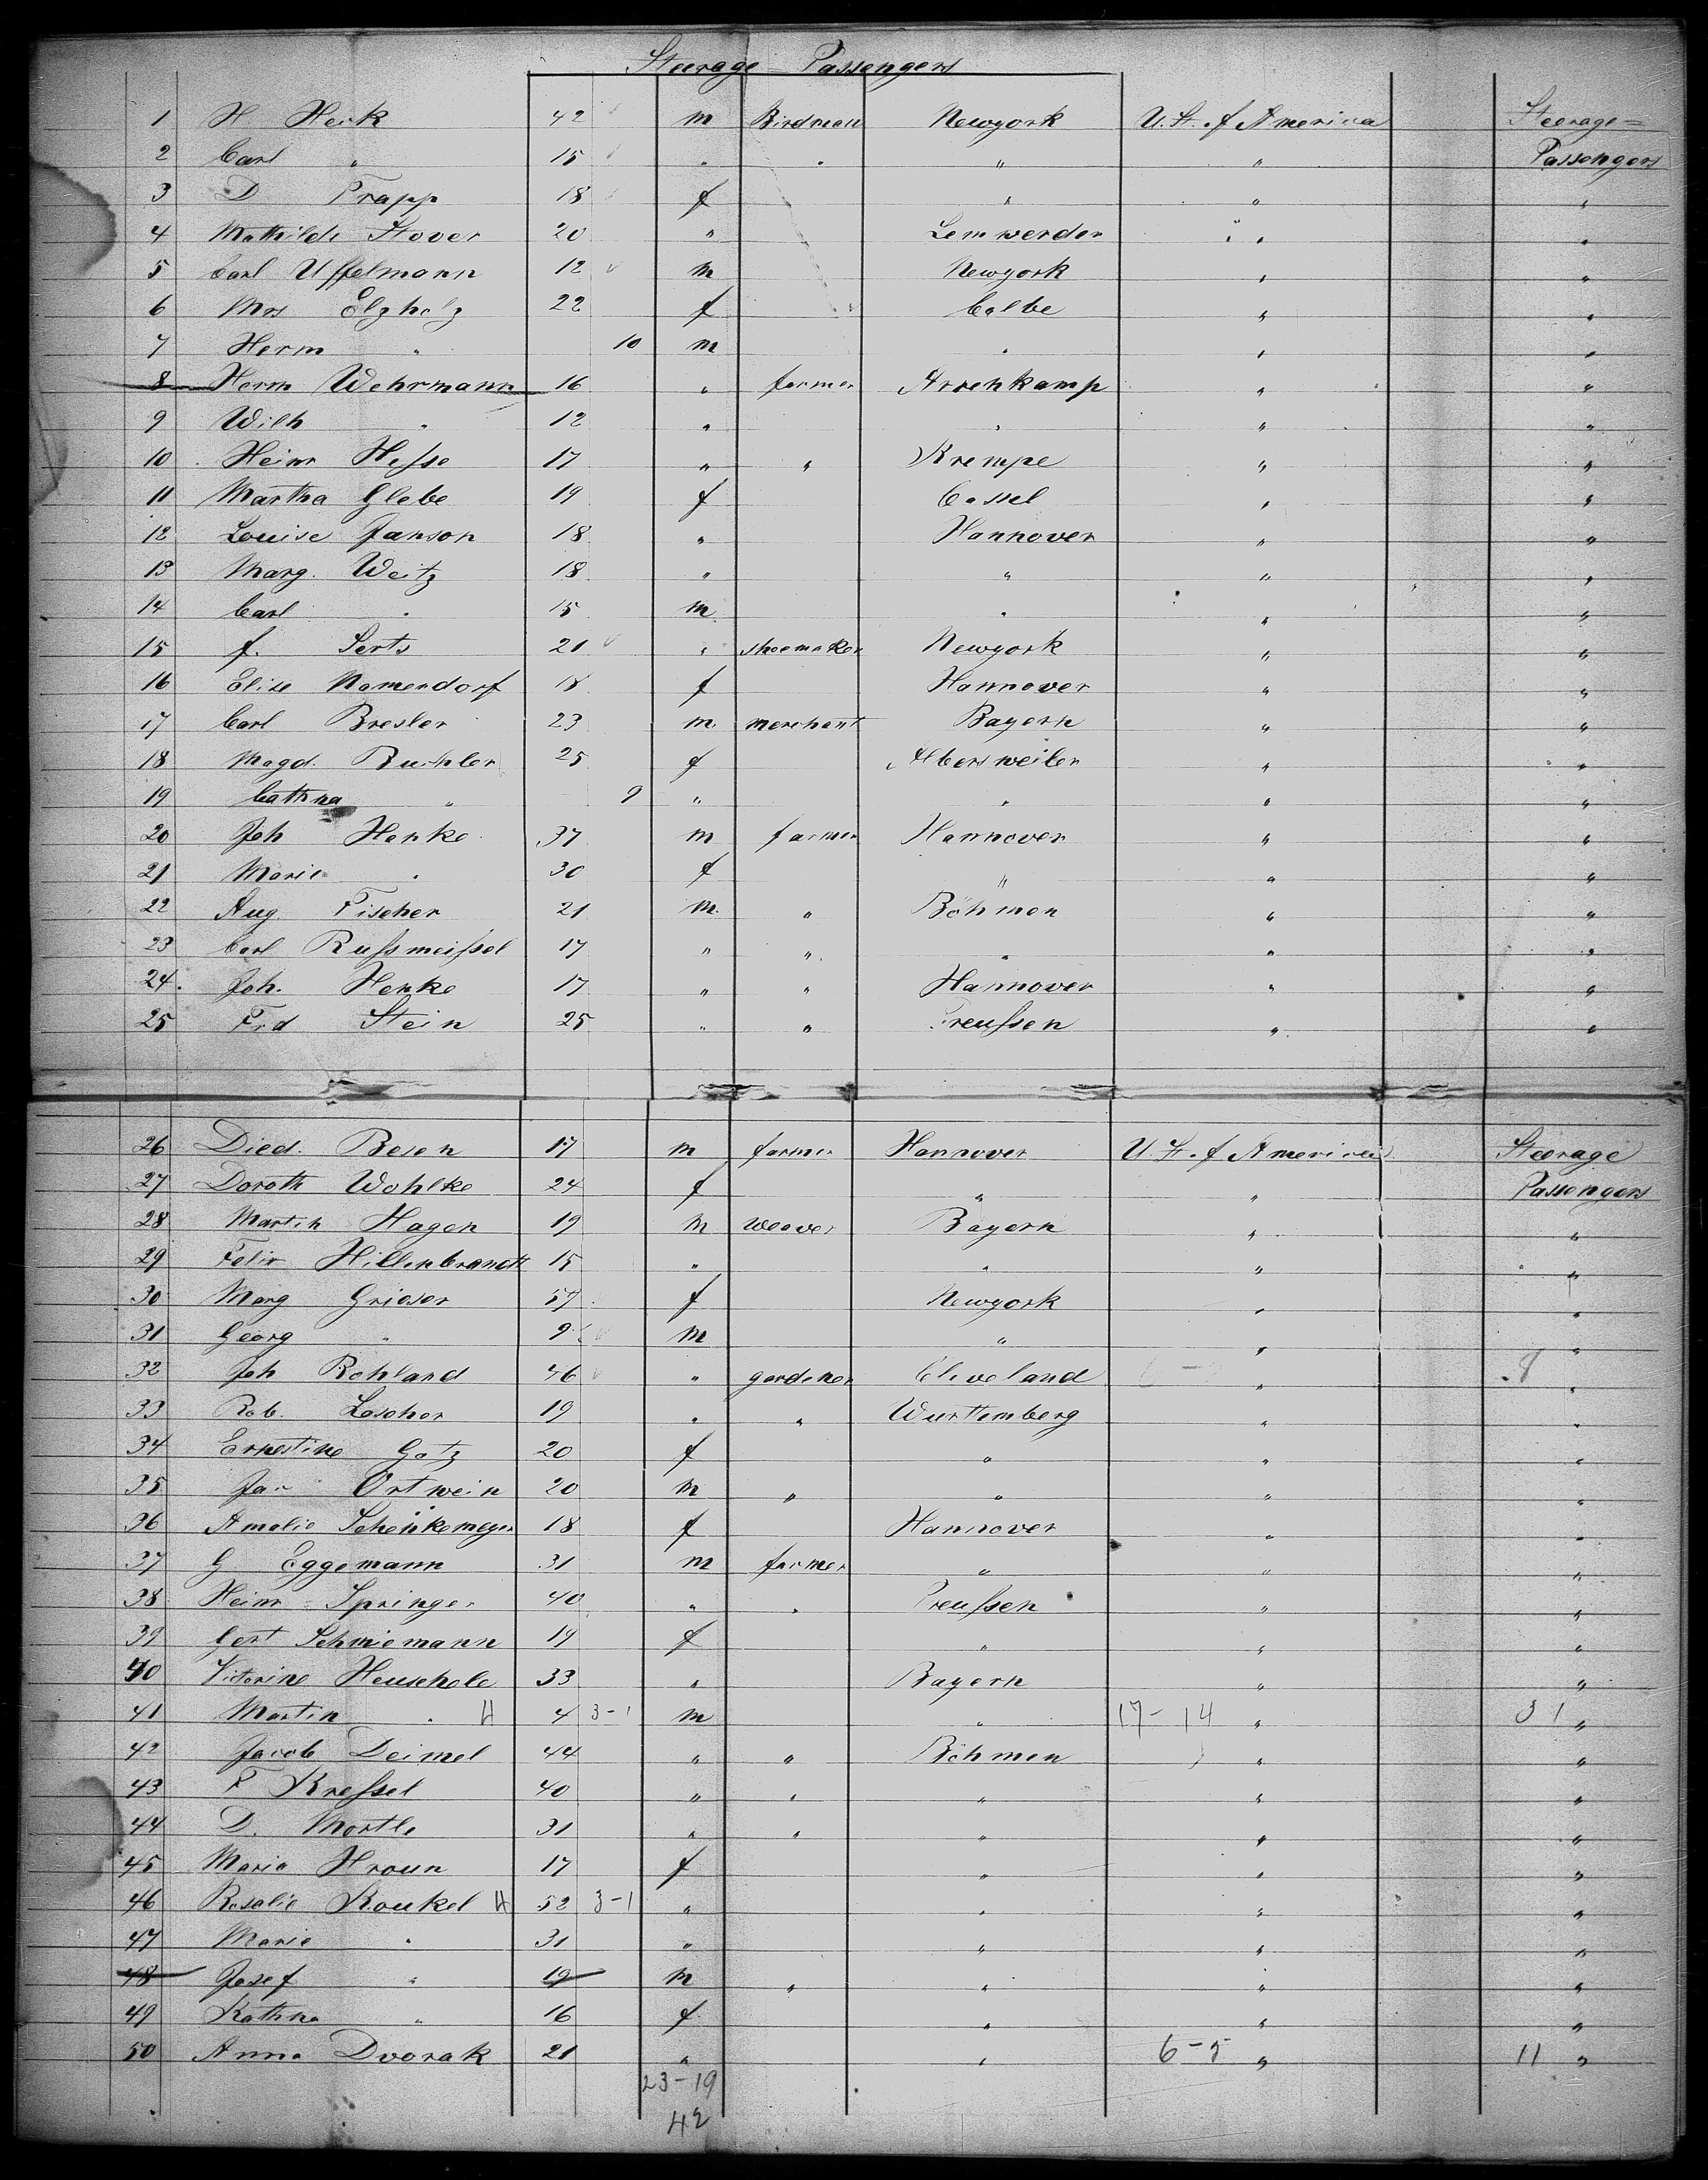 Steerage Passengers
1 H Heik 42 m Birdman Newyork U. St. of America Steerage=
2 Carl " 15 " " " " Passengers
3 D Trapp 18 f " " "
4 Mathilde Stover 20 " Lemwerder " "
5 Carl Uffelmann 12 m Newyork " "
6 Mrs Elzholz 22 f Calbe " "
7 Herm " 10 m " " "
8 Herm Wehrmann 16 " farmer Arrenkamp " "
9 Wilh " 12 " " " "
10 Heinr Hesse 17 " " Krempe " "
11 Martha Glebe 19 f Cassel " "
12 Louise Janson 18 " Hannover " "
13 Marg. Weitz 18 " " " "
14 Carl " 15 m " " "
15 f. Serts 21 " shoemaker Newyork " "
16 Elise Namendorf 18 f Hannover " "
17 Carl Bresler 23 m merchant Bayern " "
18 Magd. 25 f Albersweiler " "
19 Cathna " 9 " " " "
20 Joh Henke 37 m farmer Hannover " "
21 Marie " 30 f " " "
22 Aug Fischer 21 m. " Böhmen " "
23 Carl Russmeissel 17 " " " " "
24. Joh. Henke 17 " " Hannover " "
25 Frd Stein 25 " " Preussen " "
26 Died. Besen 17 m farmer Hannover U. St. of America Steerage
27 Doroth Wohlke 24 f " " Passengers
28 Martin Hagen 19 m weaver Bayern " "
29 Felix Hillenbrandt 15 " " " "
30 Marg Grieser 57 f Newyork " "
31 Georg " 9 m " " "
32 Joh Rohland 46 " gardener Cleveland " 8 "
33 Rob. Loscher 19 " " Wurttemberg " "
34 Ernestine Gotz 20 f " " "
35 Ortwein 20 m " " " "
36 Amalie Schenkemeyer 18 f Hannover " "
37 G Eggemann 31 m farmer " " "
38 Heinr Springer 40 " " Preussen " "
39 Gest Schniemann 19 f " " "
40 Victorine Heuschele 33 " Bayern " "
41 Martin " H 4 3-1 m " 17-14 " 31 "
42 Jacob Deimel 44 " " Böhmen " "
43 F Kressel 40 " " " " "
44 D. Mortle 31 " " " " "
45 Maria Hroun 17 f " " "
46 Rosalie Koukel H 52 3-1 " " " "
47 Marie " 31 " " " "
48 Josef " 19 m " " " "
49 Kathna " 16 f " " "
50 Anna Dvorak 21 " " 6-5 " 11 "
23-19
42